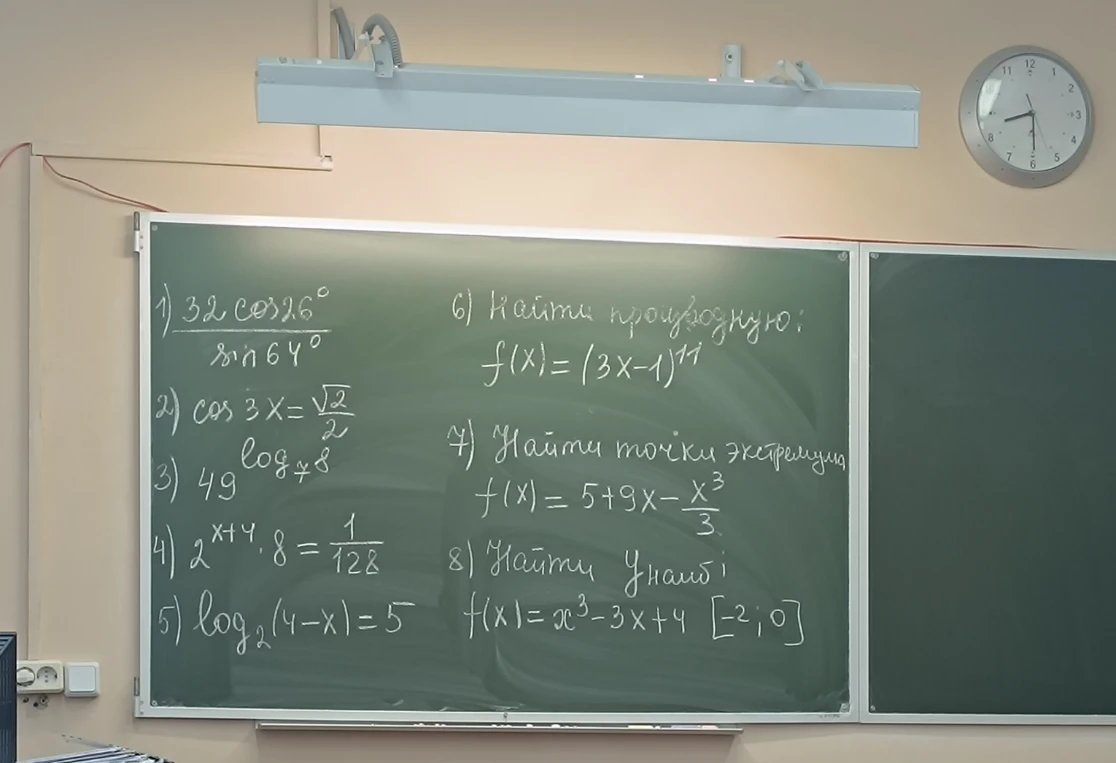 1) 32 cos26°
sin64°
2) cos 3x = √2/2
3) 49^log₇8
4) 2^x+4 · 8 = 1/128
5) log₂(4-x) = 5
6) Найти производную:
f(x) = (3x-1)¹¹
7) Найти точки экстремума
f(x) = 5+9x - x³/3
8) Найти Yнаиб:
f(x) = x³-3x+4 [-2; 0]
11 12 1
2
3
4
5
6
7
8